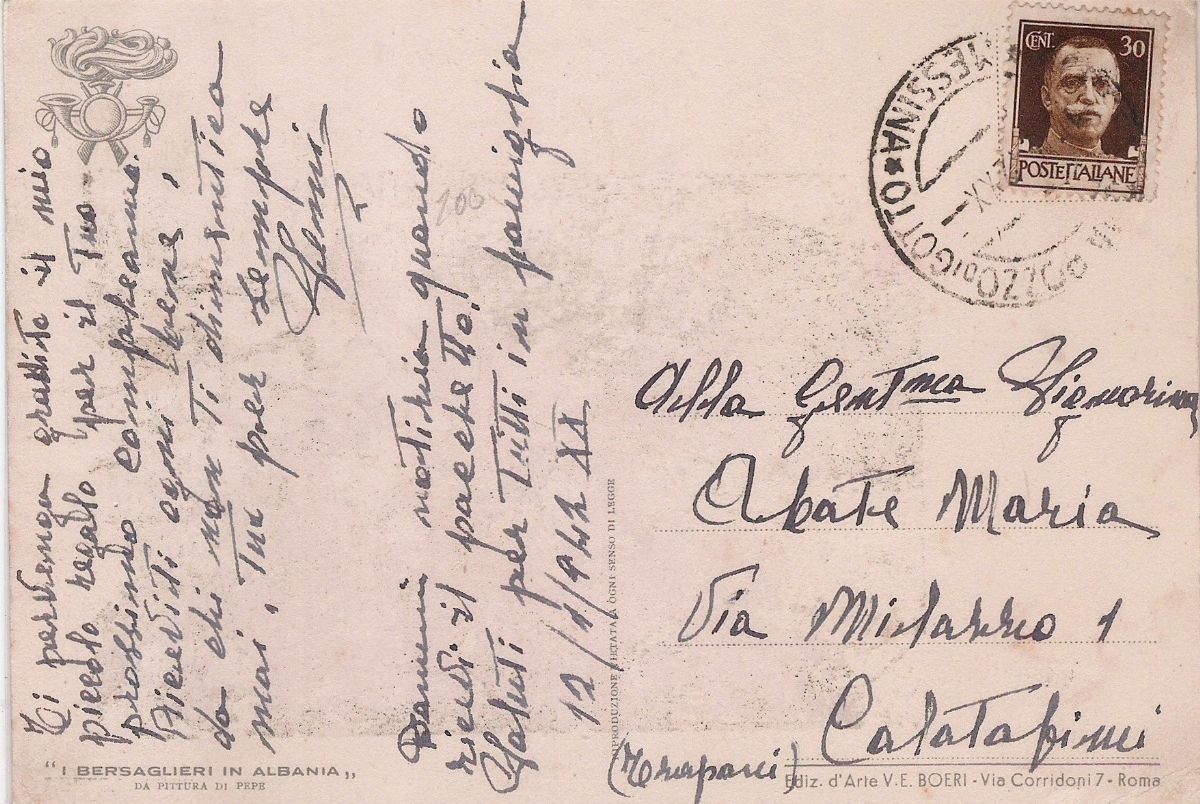 Ti pervenga gradito il mio
piccolo regalo per il Tuo
prossimo compleanno.
Riceviti ogni bene,
da chi non Ti dimentica
mai, Tuo per sempre
Dammi notizia quando
ricevi il pacchetto.
Saluti per Tutti in famiglia
12/1/942 XX
203
"I BERSAGLIERI IN ALBANIA„
DA PITTURA DI PEPE
RIPRODUZIONE VIETATA A OGNI SENSO DI LEGGE
CENT. 30
POSTE ITALIANE
POZZO di GOTTO * MESSINA *
Alla Gentma Signorina
Abate Maria
Via Milazzo 1
Calatafimi
(Trapani)
Ediz. d'Arte V. E. BOERI - Via Corridoni 7 - Roma